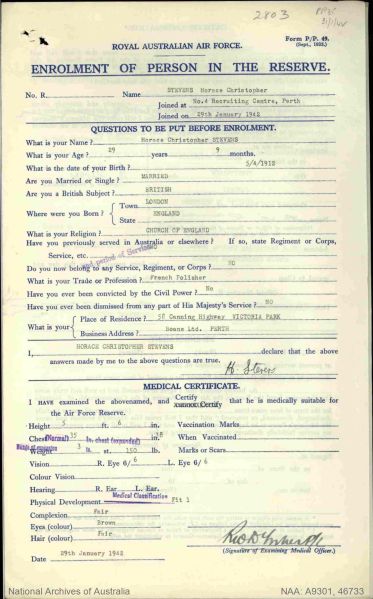 2803
Form P/P. 49.
(Sept., 1932.)
ROYAL AUSTRALIAN AIR FORCE.
ENROLMENT OF PERSON IN THE RESERVE.
No. R. Name STEVENS Horace Christopher
Joined at No.4 Recruiting Centre, Perth
Joined on 29th January 1942
QUESTIONS TO BE PUT BEFORE ENROLMENT.
What is your Name? Horace Christopher STEVENS
What is your Age? 29 years 9 months.
What is the date of your Birth? 5/4/1912
Are you Married or Single? MARRIED
Are you a British Subject? BRITISH
Where were you Born? Town LONDON
State ENGLAND
What is your Religion? CHURCH OF ENGLAND
Have you previously served in Australia or elsewhere? If so, state Regiment or Corps,
Service, etc. and period of Service
Do you now belong to any Service, Regiment, or Corps? NO
What is your Trade or Profession? French Polisher
Have you ever been convicted by the Civil Power? No
Have you ever been dismissed from any part of His Majesty's Service? NO
What is your Place of Residence? Canning Highway VICTORIA PARK
Business Address. Boans Ltd. PERTH
I, HORACE CHRISTOPHER STEVENS declare that the above
answers made by me to the above questions are true.
H. Stevens
MEDICAL CERTIFICATE.
I HAVE examined the abovenamed, and Certify that he is medically suitable for
the Air Force Reserve.
Height 5 ft. 6 in. Vaccination Marks
Chest (Normal) 35 in. chest (expanded) 38 in. When Vaccinated
Weight 3 in. st. 150 lb. Marks or Scars
Vision R. Eye 6/6 L. Eye 6/6
Colour Vision
Hearing R. Ear L. Ear.
Medical Classification
Physical Development Fit 1
Complexion Fair
Eyes (colour) Brown
Hair (colour) Fair
(Signature of Examining Medical Officer.)
Date 29th January 1942
National Archives of Australia
NAA: A9301, 46733